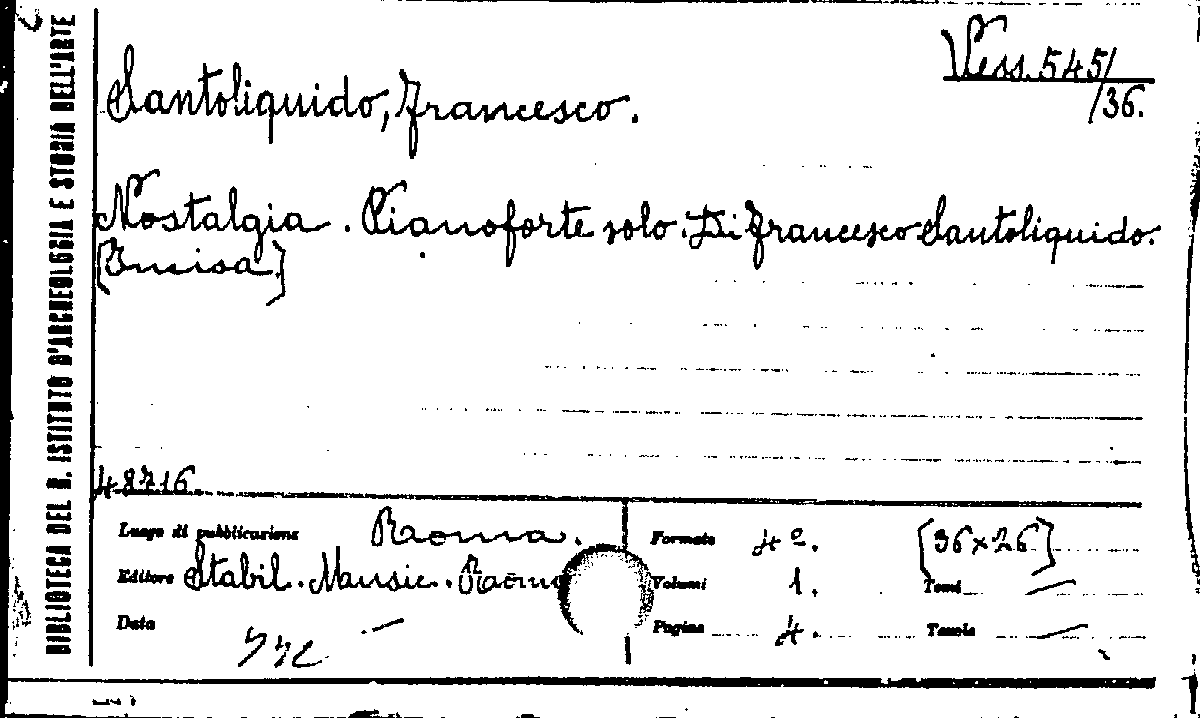 BIBLIOTECA DEL R. ISTITUTO D'ARCHEOLOGIA E STORIA DELL'ARTE
Vess. 545/
/36.
Santoliquido, Francesco.
Nostalgia. Pianoforte solo. Di Francesco Santoliquido.
[Incisa]
48716.
Luogo di pubblicazione Roma. Formato 4º. [36x26]
Editore Stabil. Music. Roma Volumi 1. Tomi —
Data — Pagine 4. Tavole —